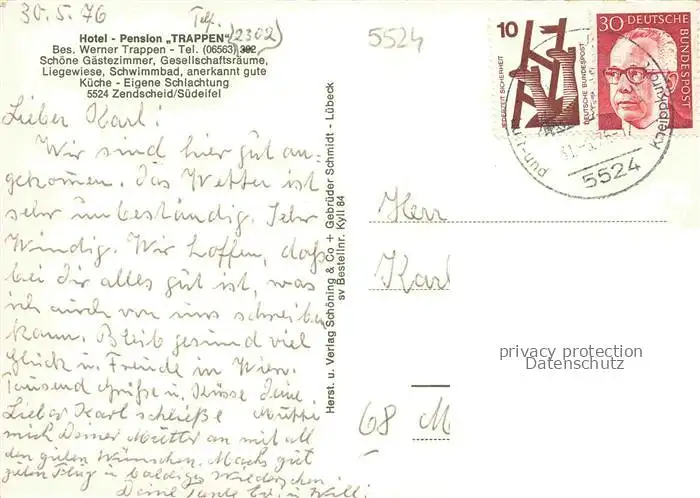 30.5.76 Telf. (2302)
Hotel - Pension „TRAPPEN“
Bes. Werner Trappen - Tel. (06563) 302
Schöne Gästezimmer, Gesellschaftsräume,
Liegewiese, Schwimmbad, anerkannt gute
Küche - Eigene Schlachtung
5524 Zendscheid/Südeifel
Lieber Karl!
Wir sind hier gut an-
gekommen. Das Wetter ist
sehr unbeständig. Sehr
Windig. Wir hoffen, daß
bei Dir alles gut ist, was
ich auch von uns schreiben
kann. Bleib gesund viel
Glück u. Freude in Wien.
Tausend Grüße u. Küsse Deine
Mutti
Lieber Karl schließe
mich Deiner Mutter an mit all
den guten Wünschen. Machs gut
guten Flug u baldiges Wiedersehen
Deine Tante u. Willi
Herst. u. Verlag Schöning & Co + Gebrüder Schmidt - Lübeck
sv Bestellnr. Kyll 84
5524
10
JEDERZEIT SICHERHEIT
DEUTSCHE BUNDESPOST
30 DEUTSCHE
BUNDESPOST
5524
Herr
Karl
privacy protection
Datenschutz
68 M